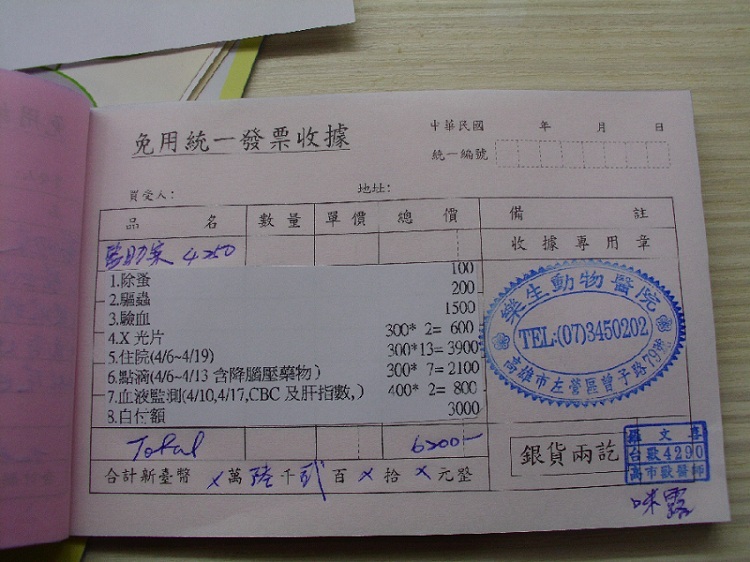 免用統一發票收據
中華民國 年 月 日
統一編號
買受人: 地址:
品 名 數量 單價 總 價 備 註
收據專用章
4250
1.除蚤 100
2.驅蟲 200
3.驗血 1500
4.X 光片 300* 2= 600
5.住院(4/6~4/19) 300*13= 3900
6.點滴(4/6~4/13 含降腦壓藥物) 300* 7= 2100
7.血液監測(4/10,4/17,CBC 及肝指數,) 400* 2= 800
8.自付額 3000
樂生動物醫院
TEL:(07)3450202
高雄市左營區曾子路79號
Total 6200-
銀貨兩訖
羅文喜
台獸4290
高市獸醫師
合計新臺幣 x萬陸千貳百x拾x元整
咪露